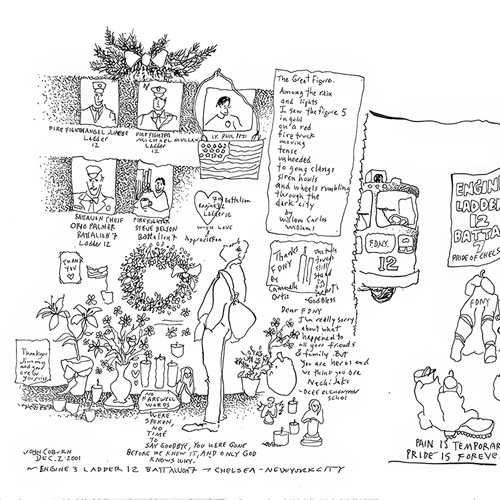 The Great Figure.
Among the rain
and lights
I saw the figure 5
in gold
on a red
firetruck
moving
tense
unheeded
to gong clangs
siren howls
and wheels rumbling
through the
dark city
by
William Carlos
Williams
FIREFIGHTER ANGEL JUARBE
Ladder
12
FIREFIGHTER
MICHAEL MULLAN
Ladder
12
LT. PHIL
BATTALION CHIEF
ORIO PALMER
BATTALION 7
Ladder 12
FIREFIGHTER
STEVE BELSON
Battalion 7
7th Battalion
Engine 3
Ladder 12
With Love
&
Appreciation
THANK
YOU
Thanks
FDNY
by
Ortiz
God Bless
Dear FDNY
I'm really sorry
about what
happened to
all your friends
& family. But
you are heros and
we think you are
school
FDNY
12
ENGINE
LADDER
12
BATTA
7
PRIDE OF CHELS
FDNY
PAIN IS TEMPORA
PRIDE IS FOREVE
Thank you
Jimmy
and your
crew
NO
FAREWELL
WORDS
WERE
SPOKEN,
NO
TIME
TO
SAY GOODBYE, YOU WERE GONE
BEFORE WE KNEW IT, AND ONLY GOD
KNOWS WHY.
JOHN COBURN
DEC. 2 2001
~ ENGINE 3 LADDER 12 BATTALION 7 → CHELSEA - NEW YORK CITY